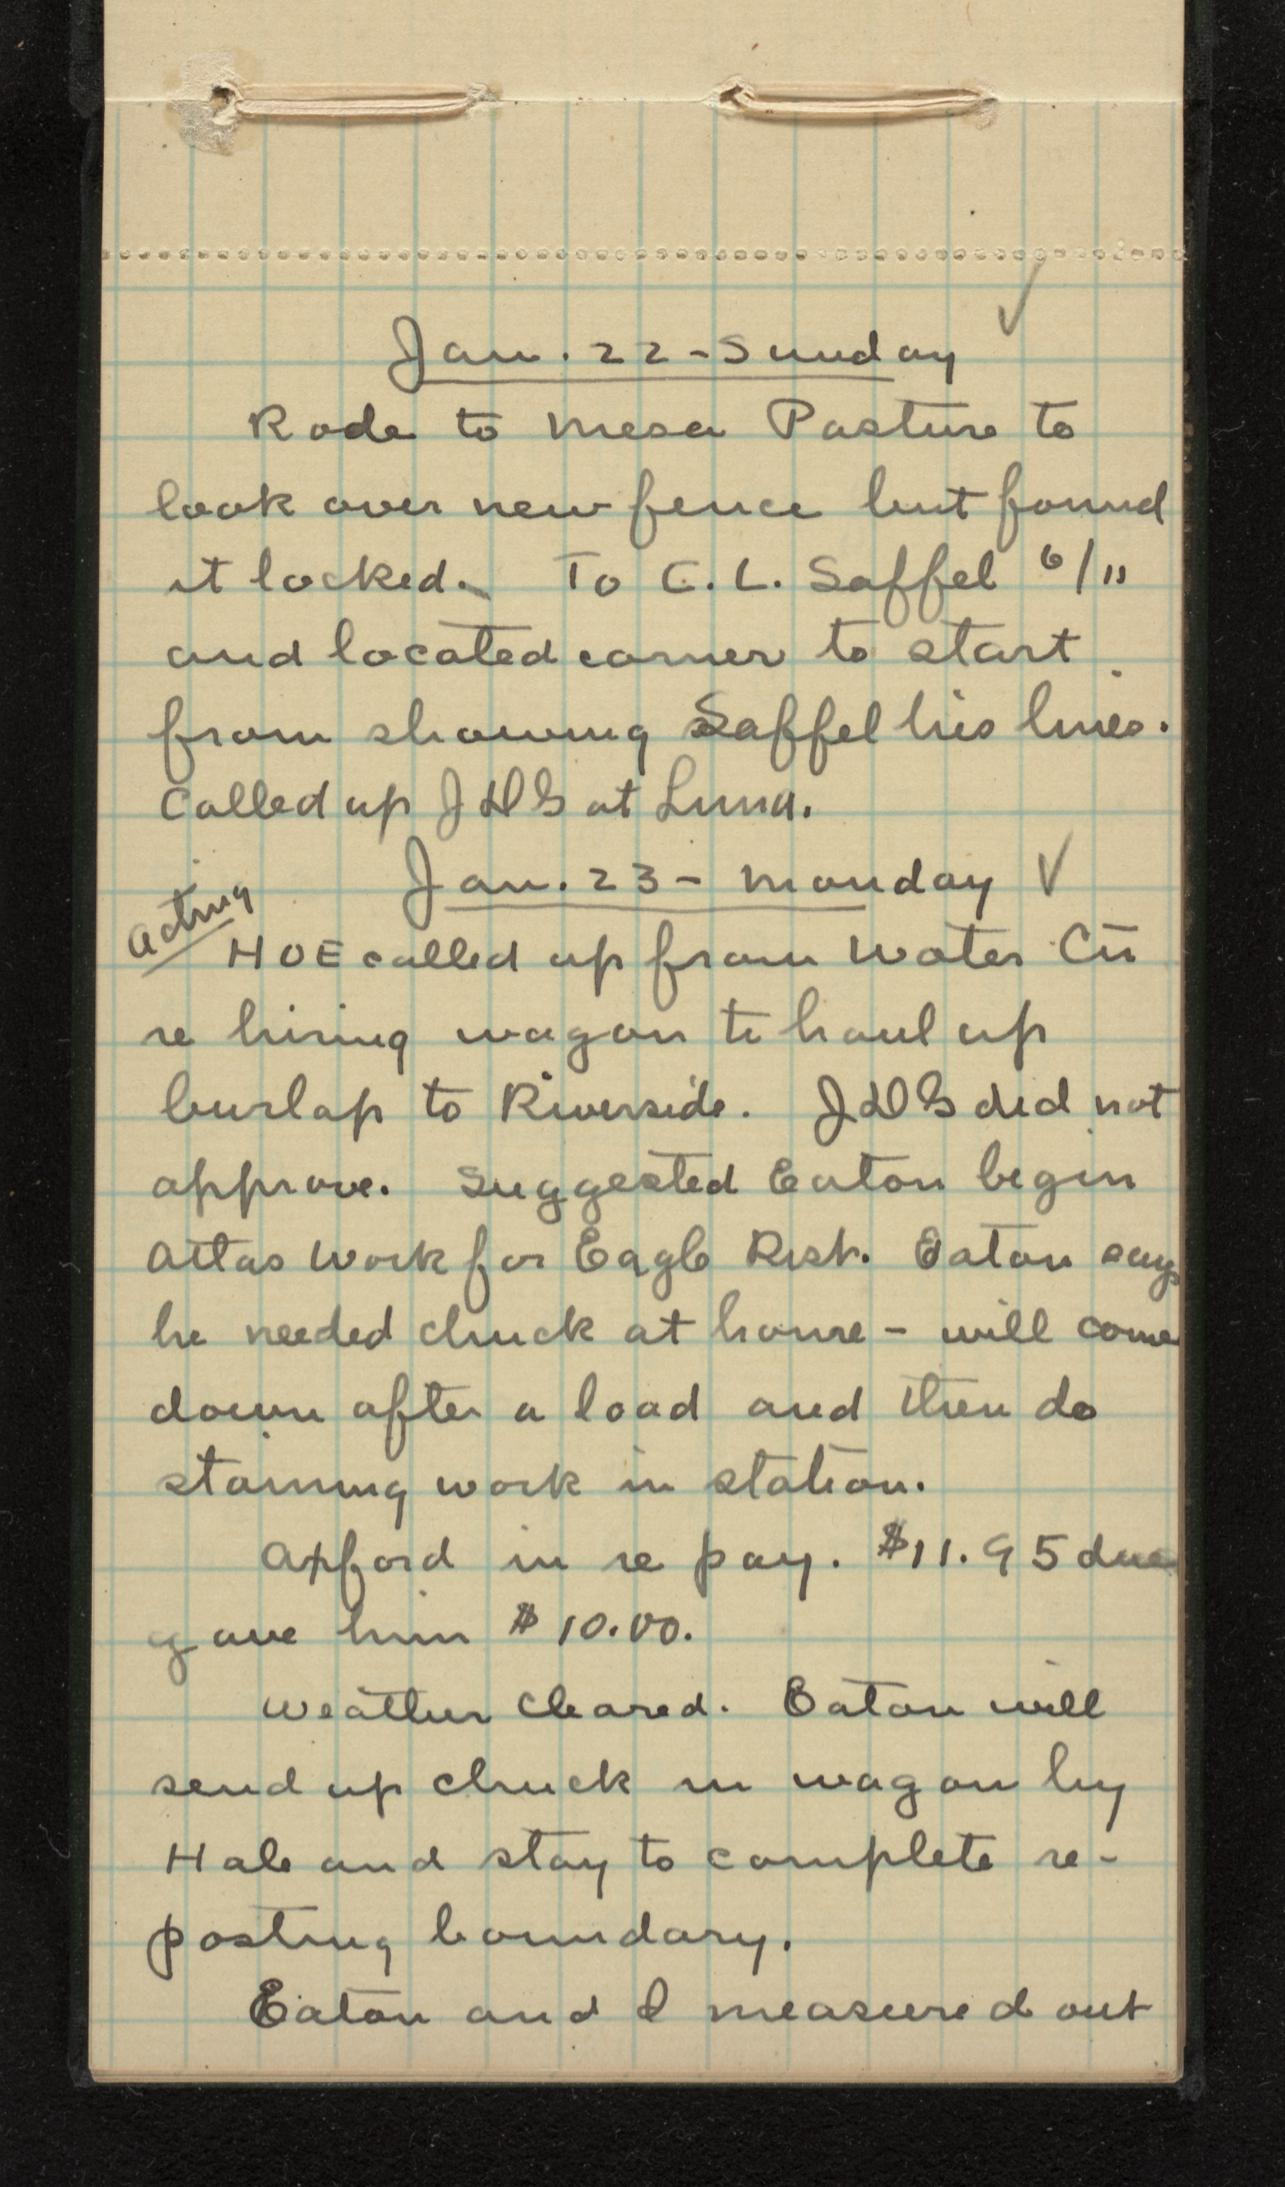 Jan. 22 - Sunday ✓
Rode to Mesa Pasture to
look over new fence but found
it locked. To C. L. Saffel 6/11
and located corner to start
from showing Saffel his lines.
Called up JDG at Luna.
Jan. 23 - Monday ✓
Acting
HOE called up from Water Cn
re hiring wagon to haul up
burlap to Riverside. JDG did not
approve. Suggested Eaton begin
Atlas work for Eagle Rsk. Eaton says
he needed chuck at house - will come
down after a load and then do
staining work in station.
Axford in re pay. $11.95 due
gave him $10.00.
Weather cleared. Eaton will
send up chuck in wagon by
Hale and stay to complete re-
posting boundary.
Eaton and I measured out